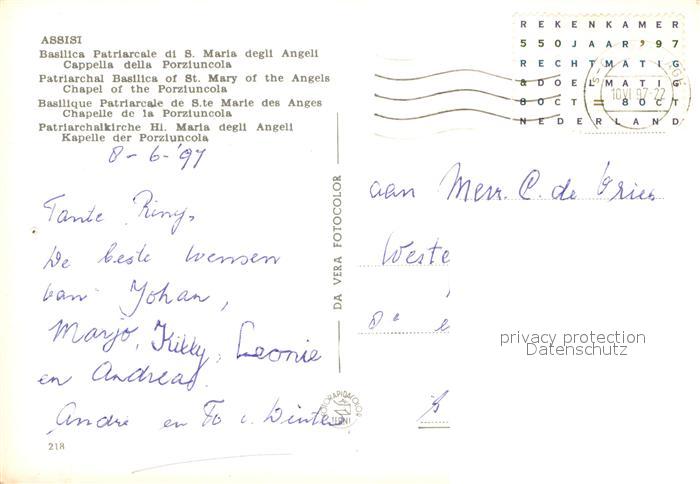 ASSISI
Basilica Patriarcale di S. Maria degli Angeli
Cappella della Porziuncola
Patriarchal Basilica of St. Mary of the Angels
Chapel of the Porziuncola
Basilique Patriarcale de S.te Marie des Anges
Chapelle de la Porziuncola
Patriarchalkirche Hl. Maria degli Angeli
Kapelle der Porziuncola
8-6-'97
Tante Riny,
De beste wensen
van Johan,
Marjo, Kitty, Leonie
en Andreas.
Andre en To v. Winter
218
DA VERA FOTOCOLOR
REKENKAMER
550JAAR,97
RECHTMATIG
&DOELMATIG
80CT=80CT
NEDERLAND
10VI 97-22
aan Mevr. C. de Vries
Weste
privacy protection
Datenschutz